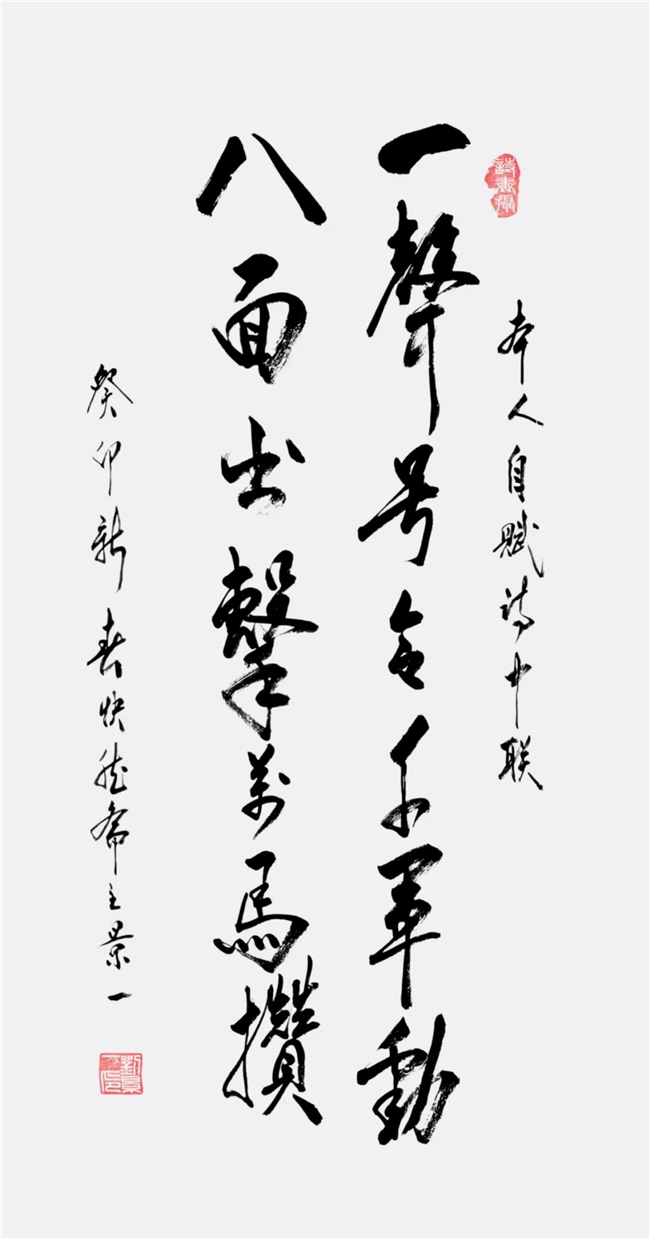 本人自赋诗中联
一聲号令千軍動
八面出擊萬馬攢
癸卯新春快然斋主景一